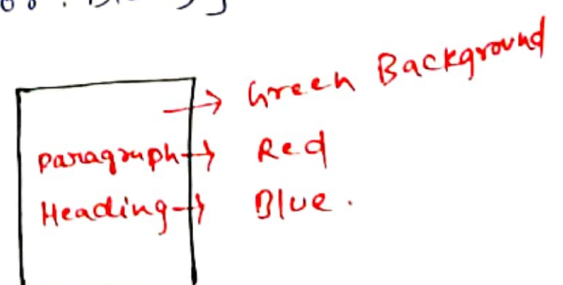 → Green Background
Paragraph → Red
Heading → Blue.